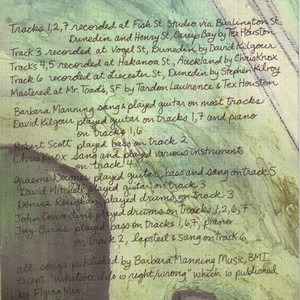 Tracks 1,2,7 recorded at Fish St. Studio via Burlington St.
Dunedin and Henry St, Careys Bay by Tex Houston
Track 3 recorded at Vogel St, Dunedin by David Kilgour
Tracks 4,5 recorded at Hakanoa St, Auckland by Chris Knox
Track 6 recorded at Leicester St, Dunedin by Stephen Kilroy
Mastered at Mr. Toads, SF by Tardon Lawrence & Tex Houston
Barbara Manning sang & played guitar on most tracks
David Kilgour played guitar on tracks 1,7 and piano
on tracks 1,6
Robert Scott played bass on track 2
Chris Knox sang and played various instruments
on track 4
Graeme Downes played guitar, bass and sang on track 5
David Mitchell played guitar on track 3
Denise Roughan played drums on track 3
John Convertino played drums on tracks 1,2,6,7
Joey Burns played bass on tracks 1,6,7, piano
on track 2, lapsteel & sang on Track 6
all songs published by Barbara Manning Music, BMI
except "Whatever I do is right/wrong" which is published
by Flying Nun